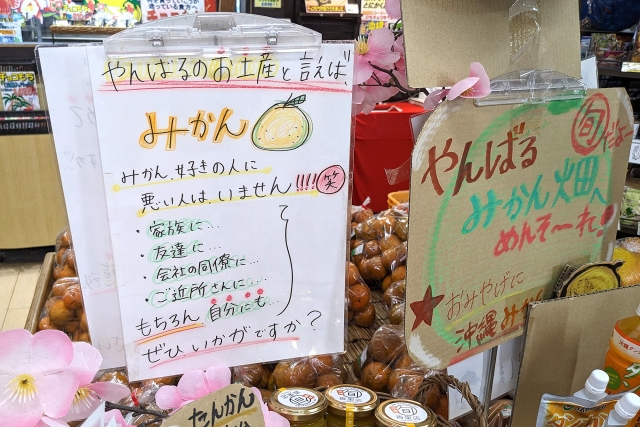 やんばるのお土産と言えば、
みかん
みかん、好きの人に
悪い人は、いません!!!!笑
・家族に…
・友達に…
・会社の同僚に…
・ご近所さんに…
もちろん自分にも…
ぜひ、いかがですか?
旬だよー
やんばる
みかん畑へ
めんそ〜れ!
★おみやげに
沖縄み
たんかん
旬
旬
旬